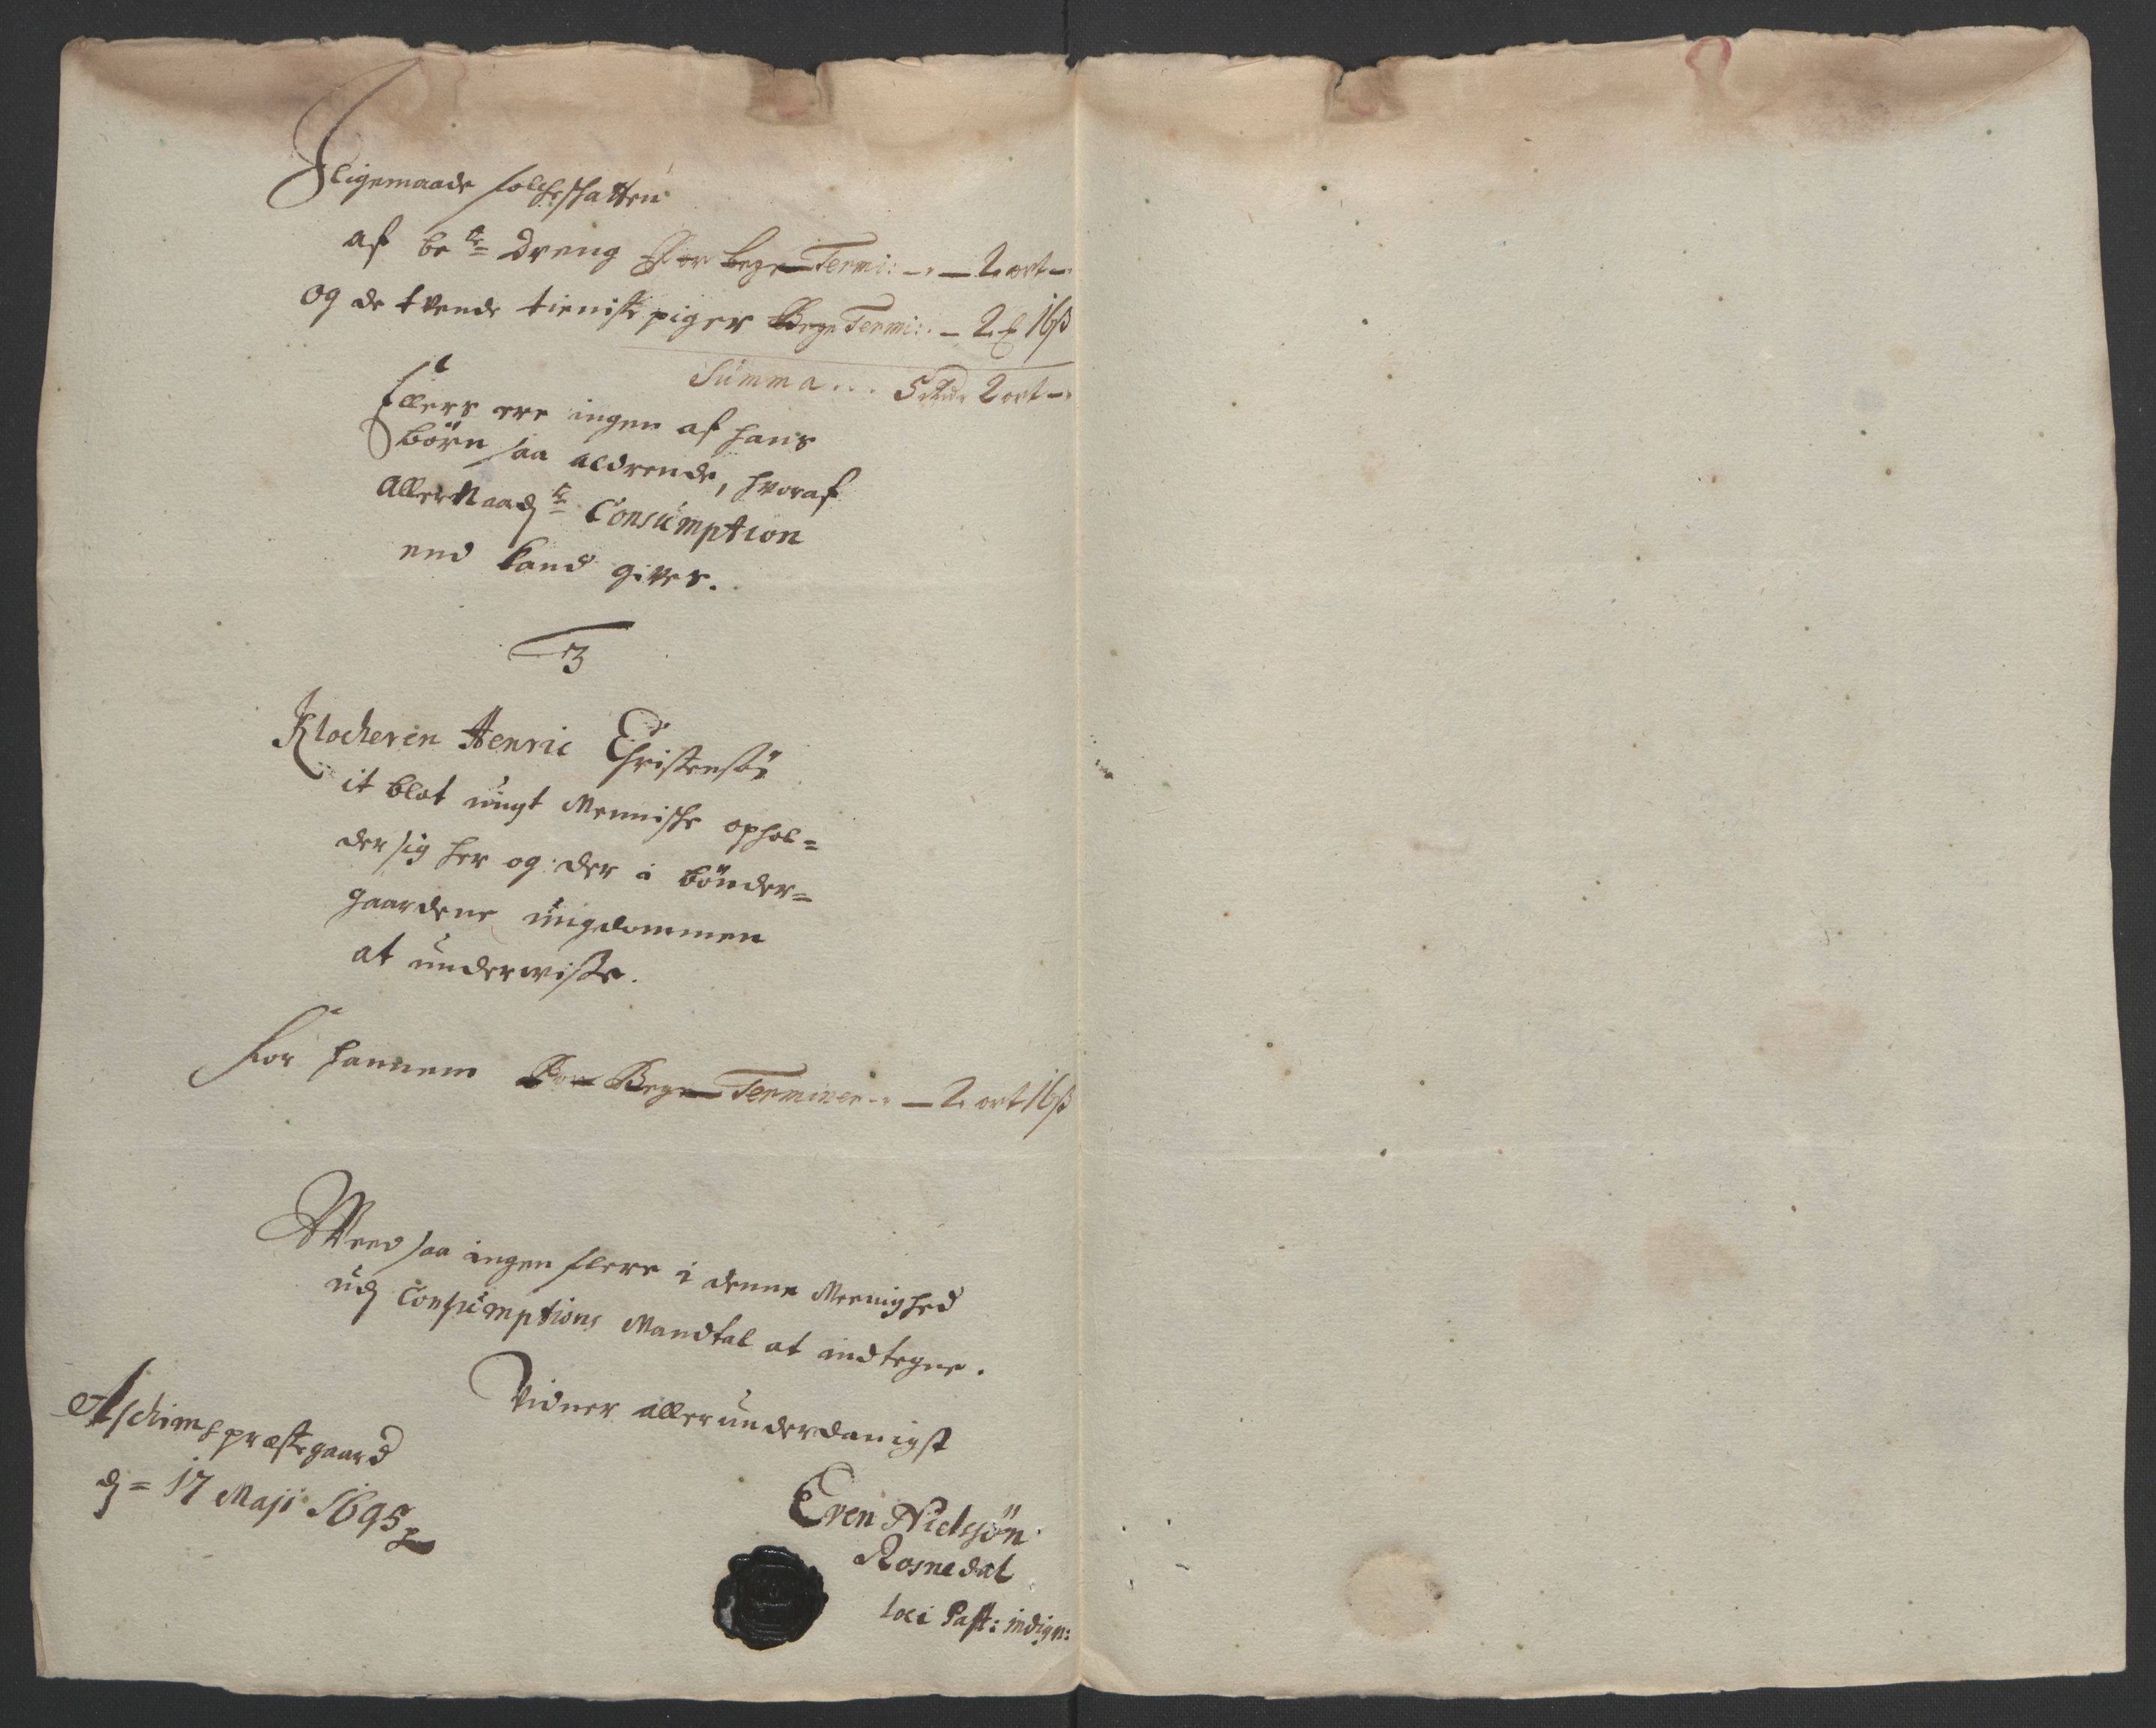 Jligemaade folcheschatten
af be.te Dreng for begge Termi: — 2 ort —
og de tvende tieniste piger Begge Termi: — 2 16 ß
Summa... 5 Rdr 2 ort —
Ellers ere ingen af hans
börn saa aldrende, hvoraf
Allernaadste Consumption
end kand gives.
3
Klocheren Henric Christensön
it blot ungt Menniske ophol=
der sig her og der i bönder=
gaardene ungdommen
at underwiise.
For hannem For Begge Terminer — 2 ort 16 ß
Weed saa ingen flere i denne Meenighed
udj Consumptions Mandtal at indtegne.
Vidner allerunderdanigst
Aschims præstegaard
dj = 17 Maji 1695
Even Nielssön
Rosnedal
loci Past: indign: